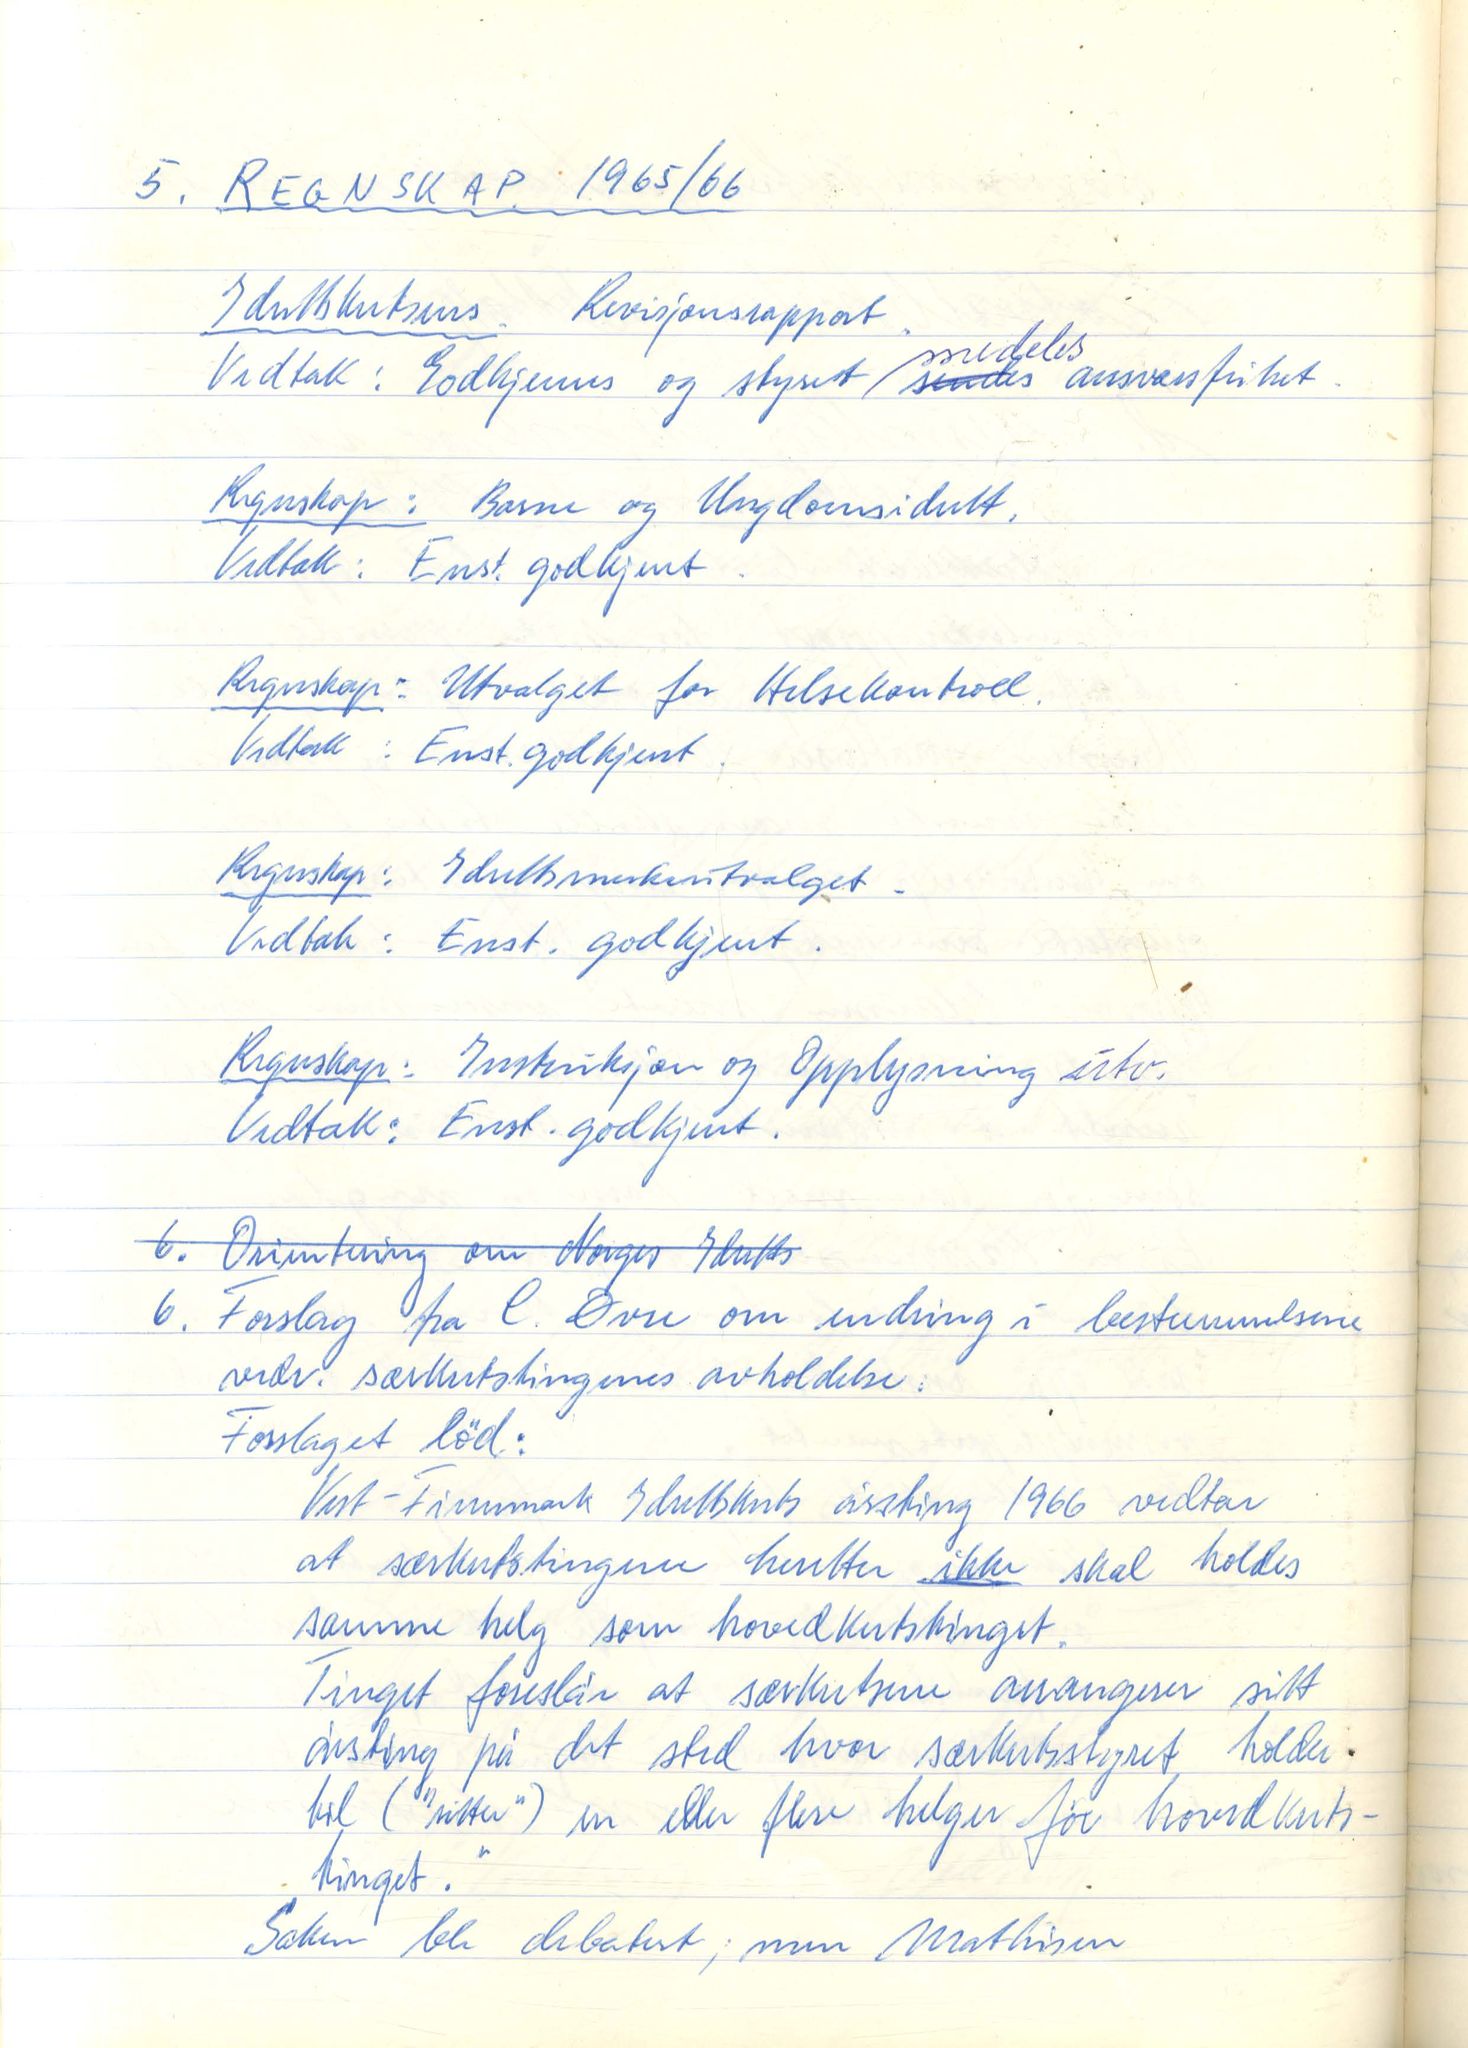 5. REGNSKAP 1965/66
Idrettskretsens Revisjonsrapport.
Vedtak: Godkjennes og styret sendes meddeles ansvarsfrihet.
Regnskap: Barne og Ungdomsidrett.
Vedtak: Enst. godkjent.
Regnskap: Utvalget for Helsekontroll.
Vedtak: Enst. godkjent.
Regnskap: Idrettsmerkeutvalget.
Vedtak: Enst. godkjent.
Regnskap: Instruksjon og Opplysning utv.
Vedtak: Enst. godkjent.
6. Orientering om Norges Idretts
6. Forslag fra C. Øvre om endring i bestemmelsene
vedr. særkretstingenes avholdelse.
Forslaget löd:
Vest-Finnmark Idrettskrets årsting 1966 vedtar
at særkretstingene heretter ikke skal holdes
samme helg som hovedkretstinget.
Tinget foreslår at særkretsene arrangerer sitt
årsting på det sted hvor særkretsstyret holder
til ("sitter") en eller flere helger för hovedkrets-
tinget."
Saken ble debatert, men Mathisen